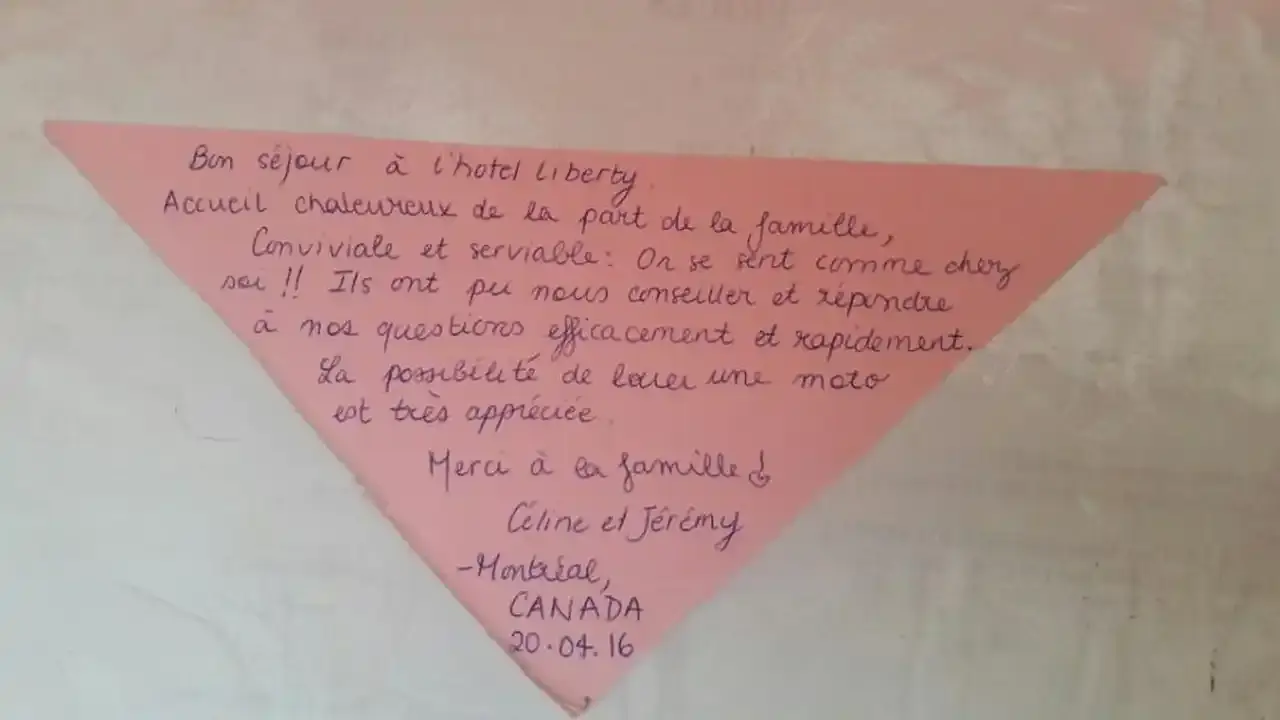 Bon séjour à l'hotel liberty.
Accueil chaleureux de la part de la famille,
Conviviale et serviable: On se sent comme chez
soi !! Ils ont pu nous conseiller et répondre
à nos questions efficacement et rapidement.
La possibilité de louer une moto
est très appréciée.
Merci à la famille!
Céline et Jérémy
-Montréal,
CANADA
20.04.16